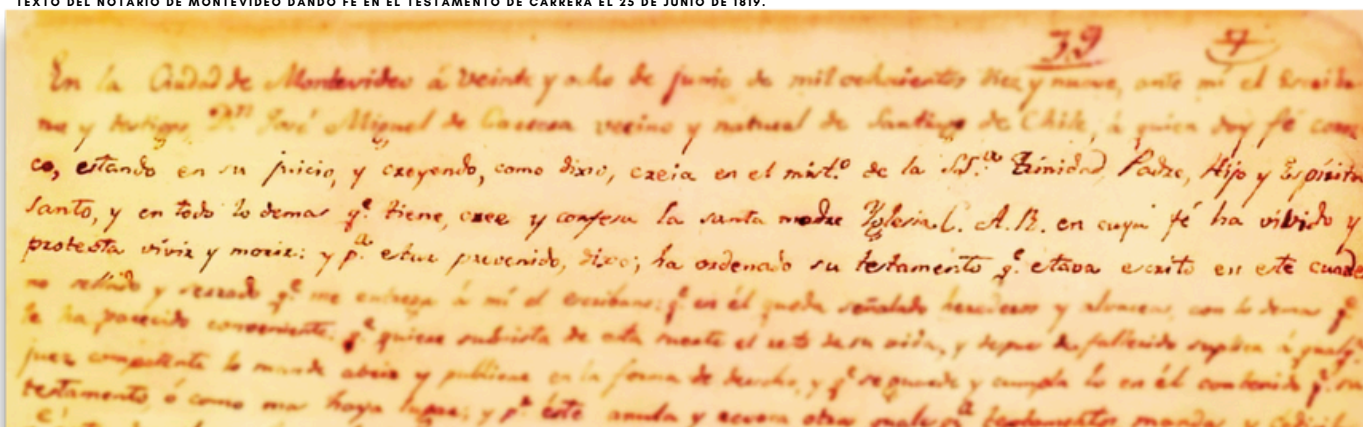 TEXTO DEL NOTARIO DE MONTEVIDEO DANDO FE EN EL TESTAMENTO DE CARRERA EL 25 DE JUNIO DE 1819.
39 7
En la Ciudad de Montevideo á veinte y ocho de junio de mil ochocientos diez y nueve, ante mi el Escriba
no y testigos Dn José Miguel de Carrera vecino y natural de Santiago de Chile, á quien doy fé cono
co, estando en su juicio, y creyendo, como dixo, creia en el mist.o de la SSma Trinidad Padre, Hijo y Espiritu
Santo, y en todo lo demas qe tiene, cree y confesa la santa madre Yglesia C. A. R. en cuya fé ha vivido y
protesta vivir y morir: y pa estar prevenido, dixo; ha ordenado su testamento qe estava escrito en este cuader
no sellado y serrado qe me entrega á mi el escribano: qe en él queda señalado herederos y alvaceas, con lo demas qe
le ha parecido conveniente. qe quiere subsista de esta suerte el resto de su vida, y depues de fallecido suplica á qualqr
juez competente lo mande abrir y publicar en la forma de derecho, y qe se guarde y cumpla lo en él contenido pr su
testamento, ó como mas haya lugar; y pr este anula y revoca otros testamentos mandas y